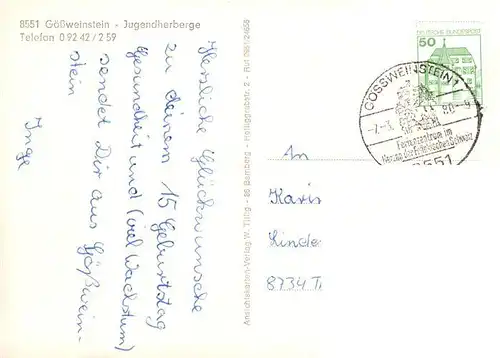 8551 Gößweinstein - Jugendherberge
Telefon 0 92 42 / 2 59
Herzliche Glückwünsche
zu deinem 15 Geburtstag
Gesundheit und (viel Wachstum)
sendet Dir aus Gößwein-
stein
Inge
Ansichtskarten-Verlag W. Tillig - 86 Bamberg - Ruf 0951/24658
DEUTSCHE BUNDESPOST
50
GÖSSWEINSTEIN 1
-7.-3. 80.-9
Ferienzentrum im
Herzen der Fränkischen Schweiz
8551
An
Karis
Linde
8734 T.